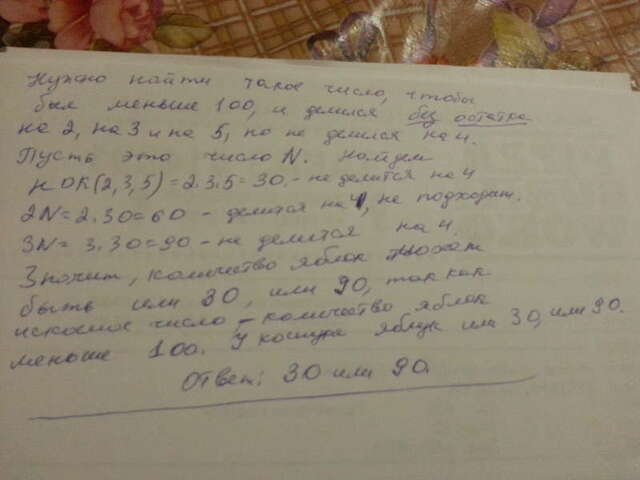 Нужно найти такое число, чтобы
был меньше 100, и делился без остатка
на 2, на 3 и на 5, но не делился на 4.
Пусть это число N. Найдем
НОК(2,3,5)=2·3·5=30.- не делится на 4
2N=2·30=60 - делится на 4, не подходит.
3N=3·30=90 - не делится на 4.
Значит, количество яблок может
быть или 30, или 90, так как
искомое число - количество яблок
меньше 100. У яблук или 30, или 90.
Ответ: 30 или 90.